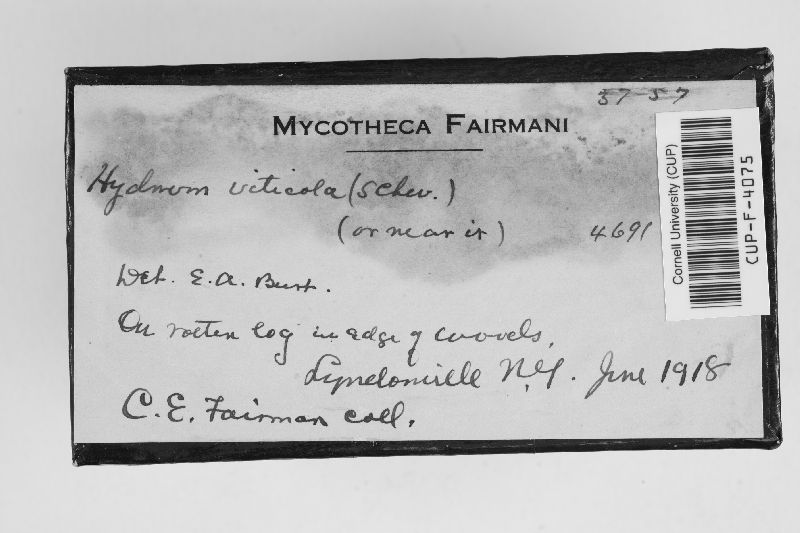 37 57
MYCOTHECA FAIRMANI
Hydnum viticola (Schw.)
(or near it) 4691
Det. E.A. Burt.
On rotten log in edge of woods,
Lyndonville N.Y. June 1918
C.E. Fairman coll.
Cornell University (CUP)
CUP-F-4075